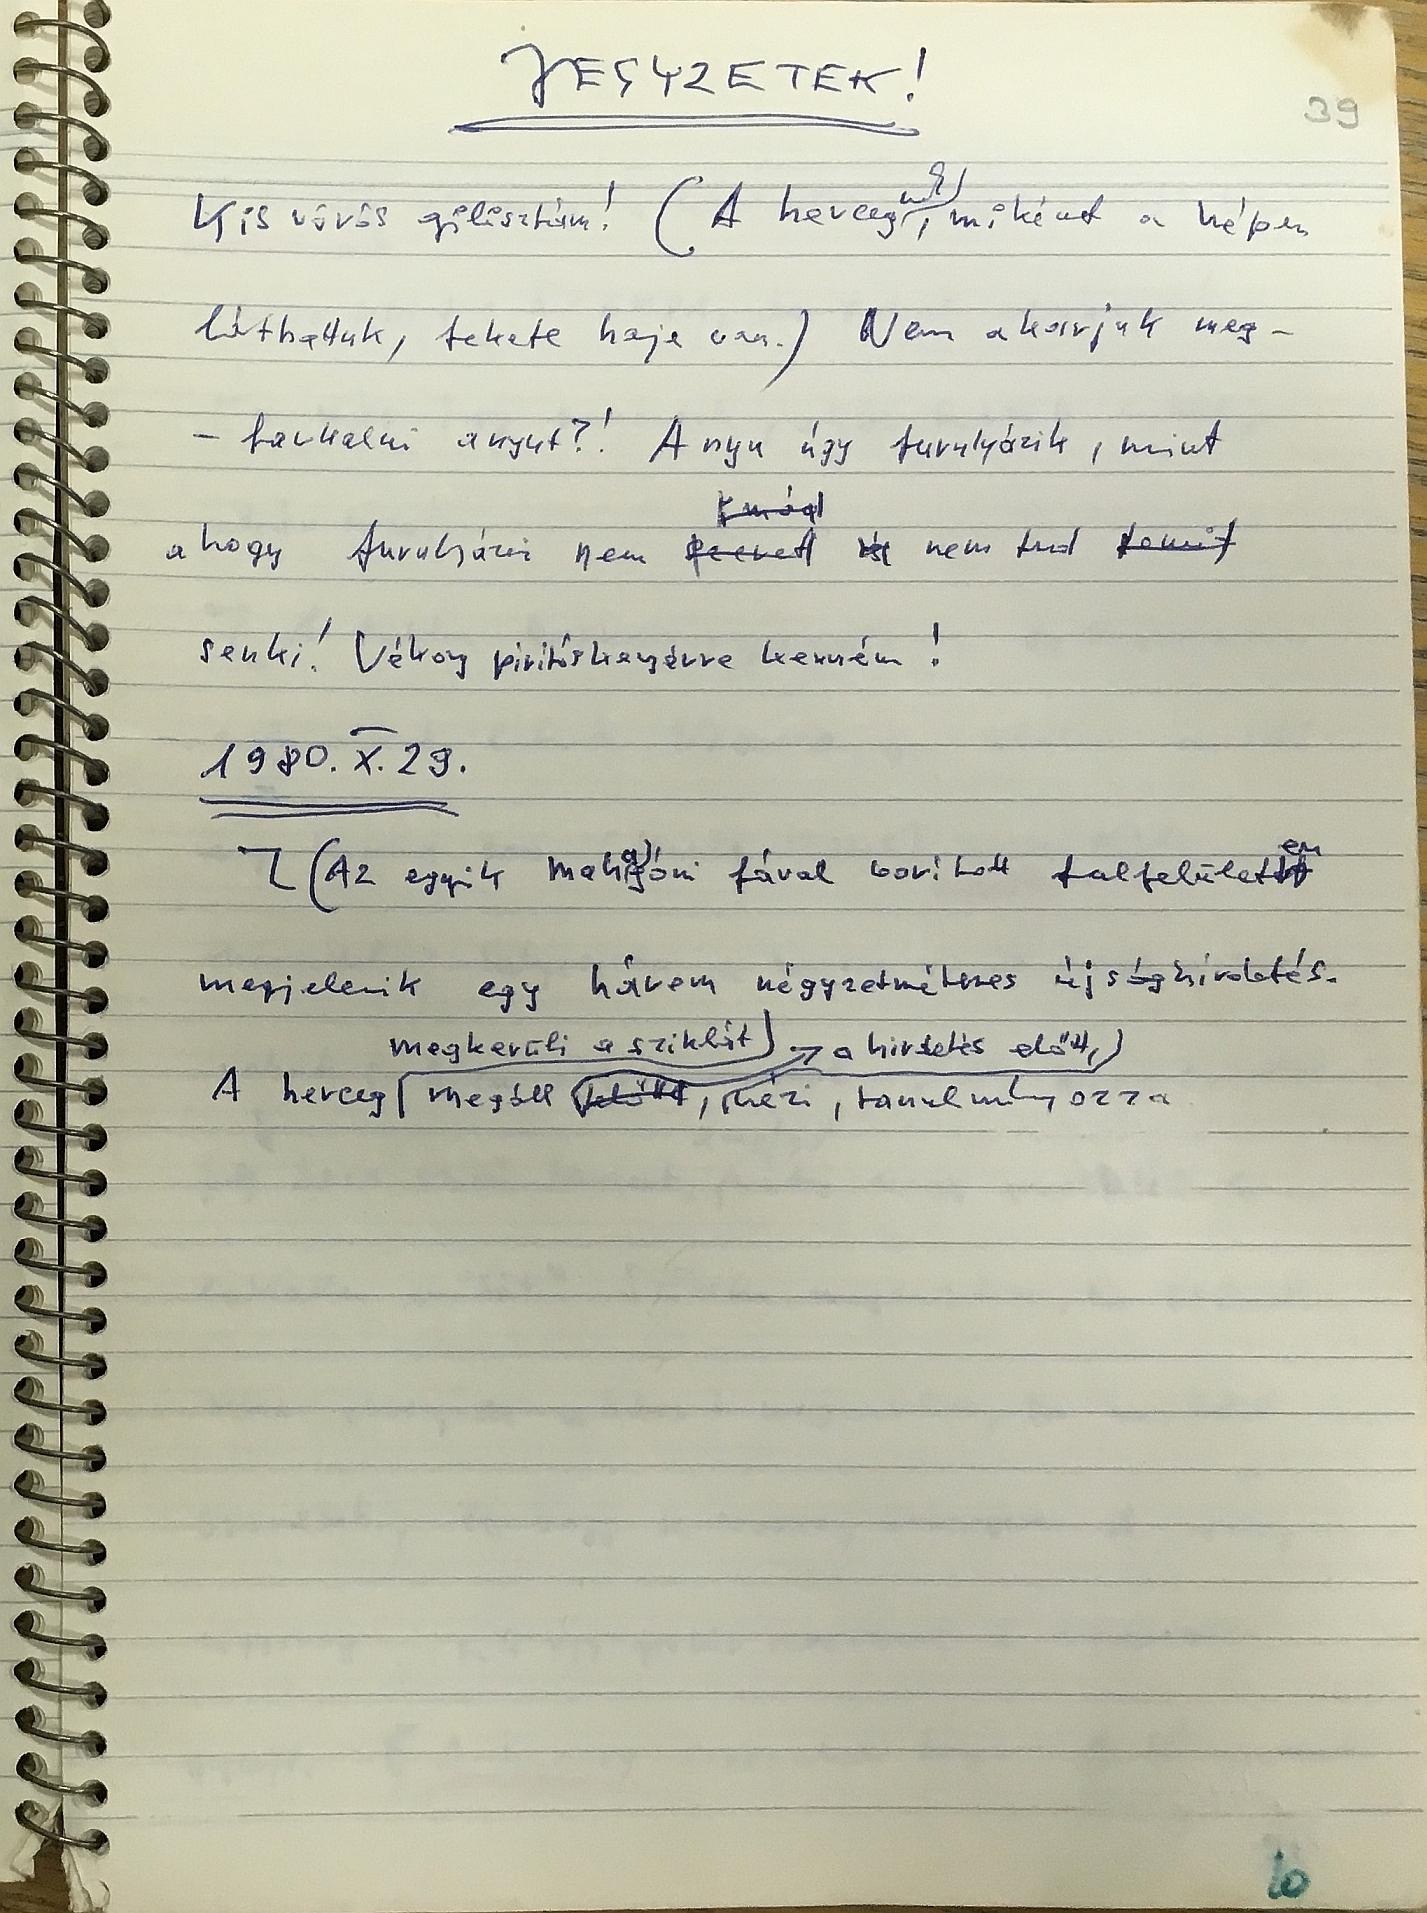 JEGYZETEK!
39
Kis vörös gilisztám! (A hercegnek, miként a képen
láthattuk, fekete haja van.) Nem akarjuk meg-
- farkalni anyut?! Anyu úgy furulyázik, mint
imád
ahogy furulyázni nem szeret is nem tud
senki! Vékony pirítóskenyérre kenném!
1980. X. 29.
(Az egyik mahagóni fával borított falfelületen
megjelenik egy három négyzetméteres újsághirdetés.
megkerüli a sziklát → a hirdetés előtt,
A herceg megáll előtt, nézi, tanulmányozza
10